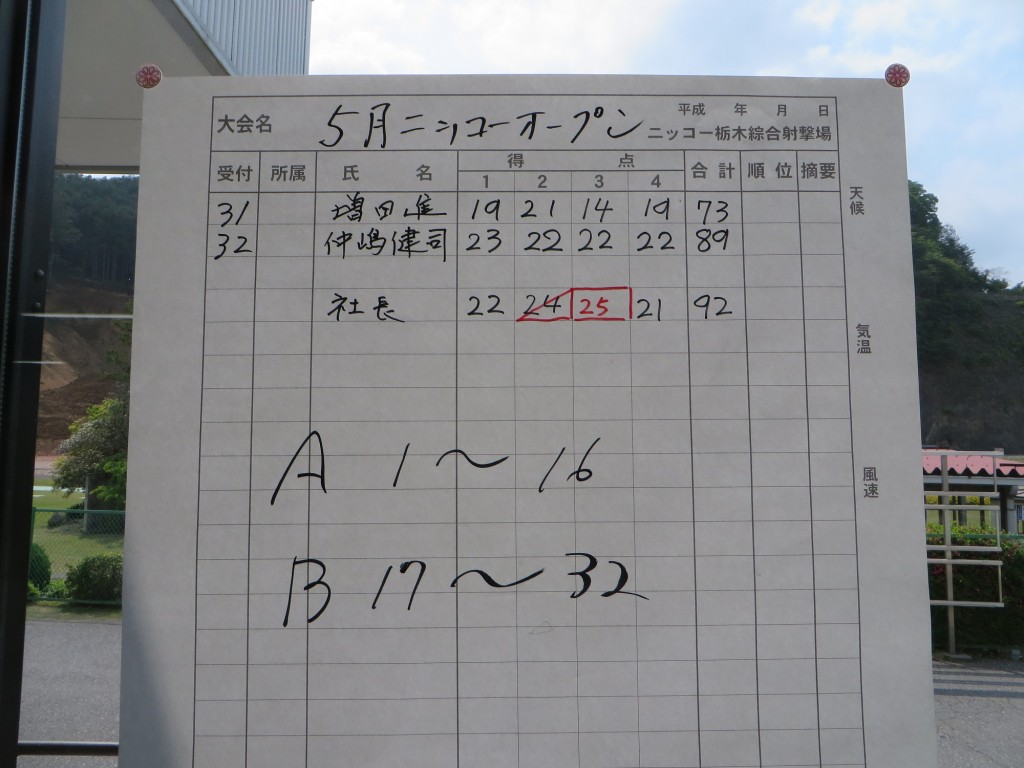 平成 年 月 日
大会名 5月ニッコーオープン ニッコー栃木綜合射撃場
受付 所属 氏 名 得 点 合計 順位 摘要
1 2 3 4
31 増田進 19 21 14 19 73
32 仲嶋健司 23 22 22 22 89
社長 22 24 25 21 92
A 1〜16
B 17〜32
天候
気温
風速